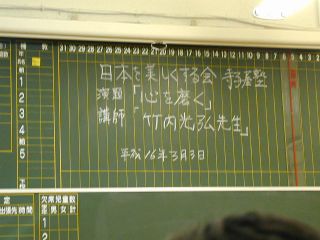 31 30 29 28 27 26 25 24 23 22 21 20 19 18 17 16 15 14 13 12 11 10 9 8 7 6 5 4 3
日本を美しくする会 寺子屋塾
演題 「心を磨く」
講師 「竹内光弘先生」
平成16年3月3日
1
2
3
4
5
定
出張先時間
欠席児童数
年男女計
1
2